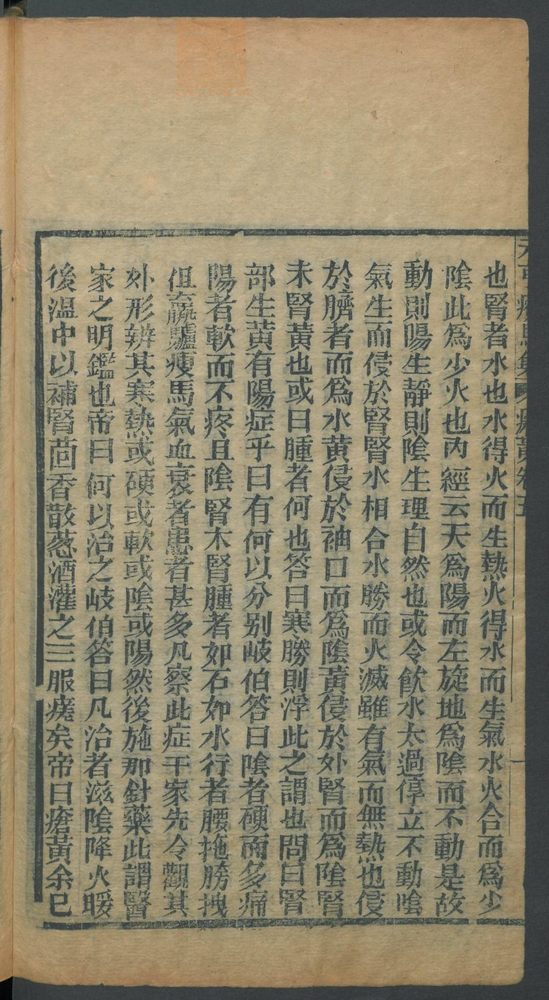 也腎者水也水得火而生熱火得水而生氣水火合而爲少
陰此爲少火也內經云天爲陽而左旋地爲陰而不動是故
動則陽生靜則陰生理自然也或令飲水太過停立不動陰
氣生而侵於腎腎水相合水勝而火滅雖有氣而無熱也侵
於臍者而爲水黃侵於袖口而爲陰黃侵於外腎而爲陰腎
木腎黃也或曰腫者何也答曰寒勝則浮此之謂也問曰腎
部生黃有陽症乎曰有何以分別岐伯答曰陰者硬而多痛
陽者軟而不疼且陰腎木腎腫者如石如水行者腰拖胯拽
但畜騾驢瘦馬氣血衰者患者甚多凡察此症干家先令觀其
外形辨其寒熱或硬或軟或陰或陽然後施那針藥此謂醫
家之明鑑也帝曰何以治之岐伯答曰凡治者滋陰降火暖
後溫中以補腎茴香散葱酒灌之三服瘥矣帝曰瘡黃余已